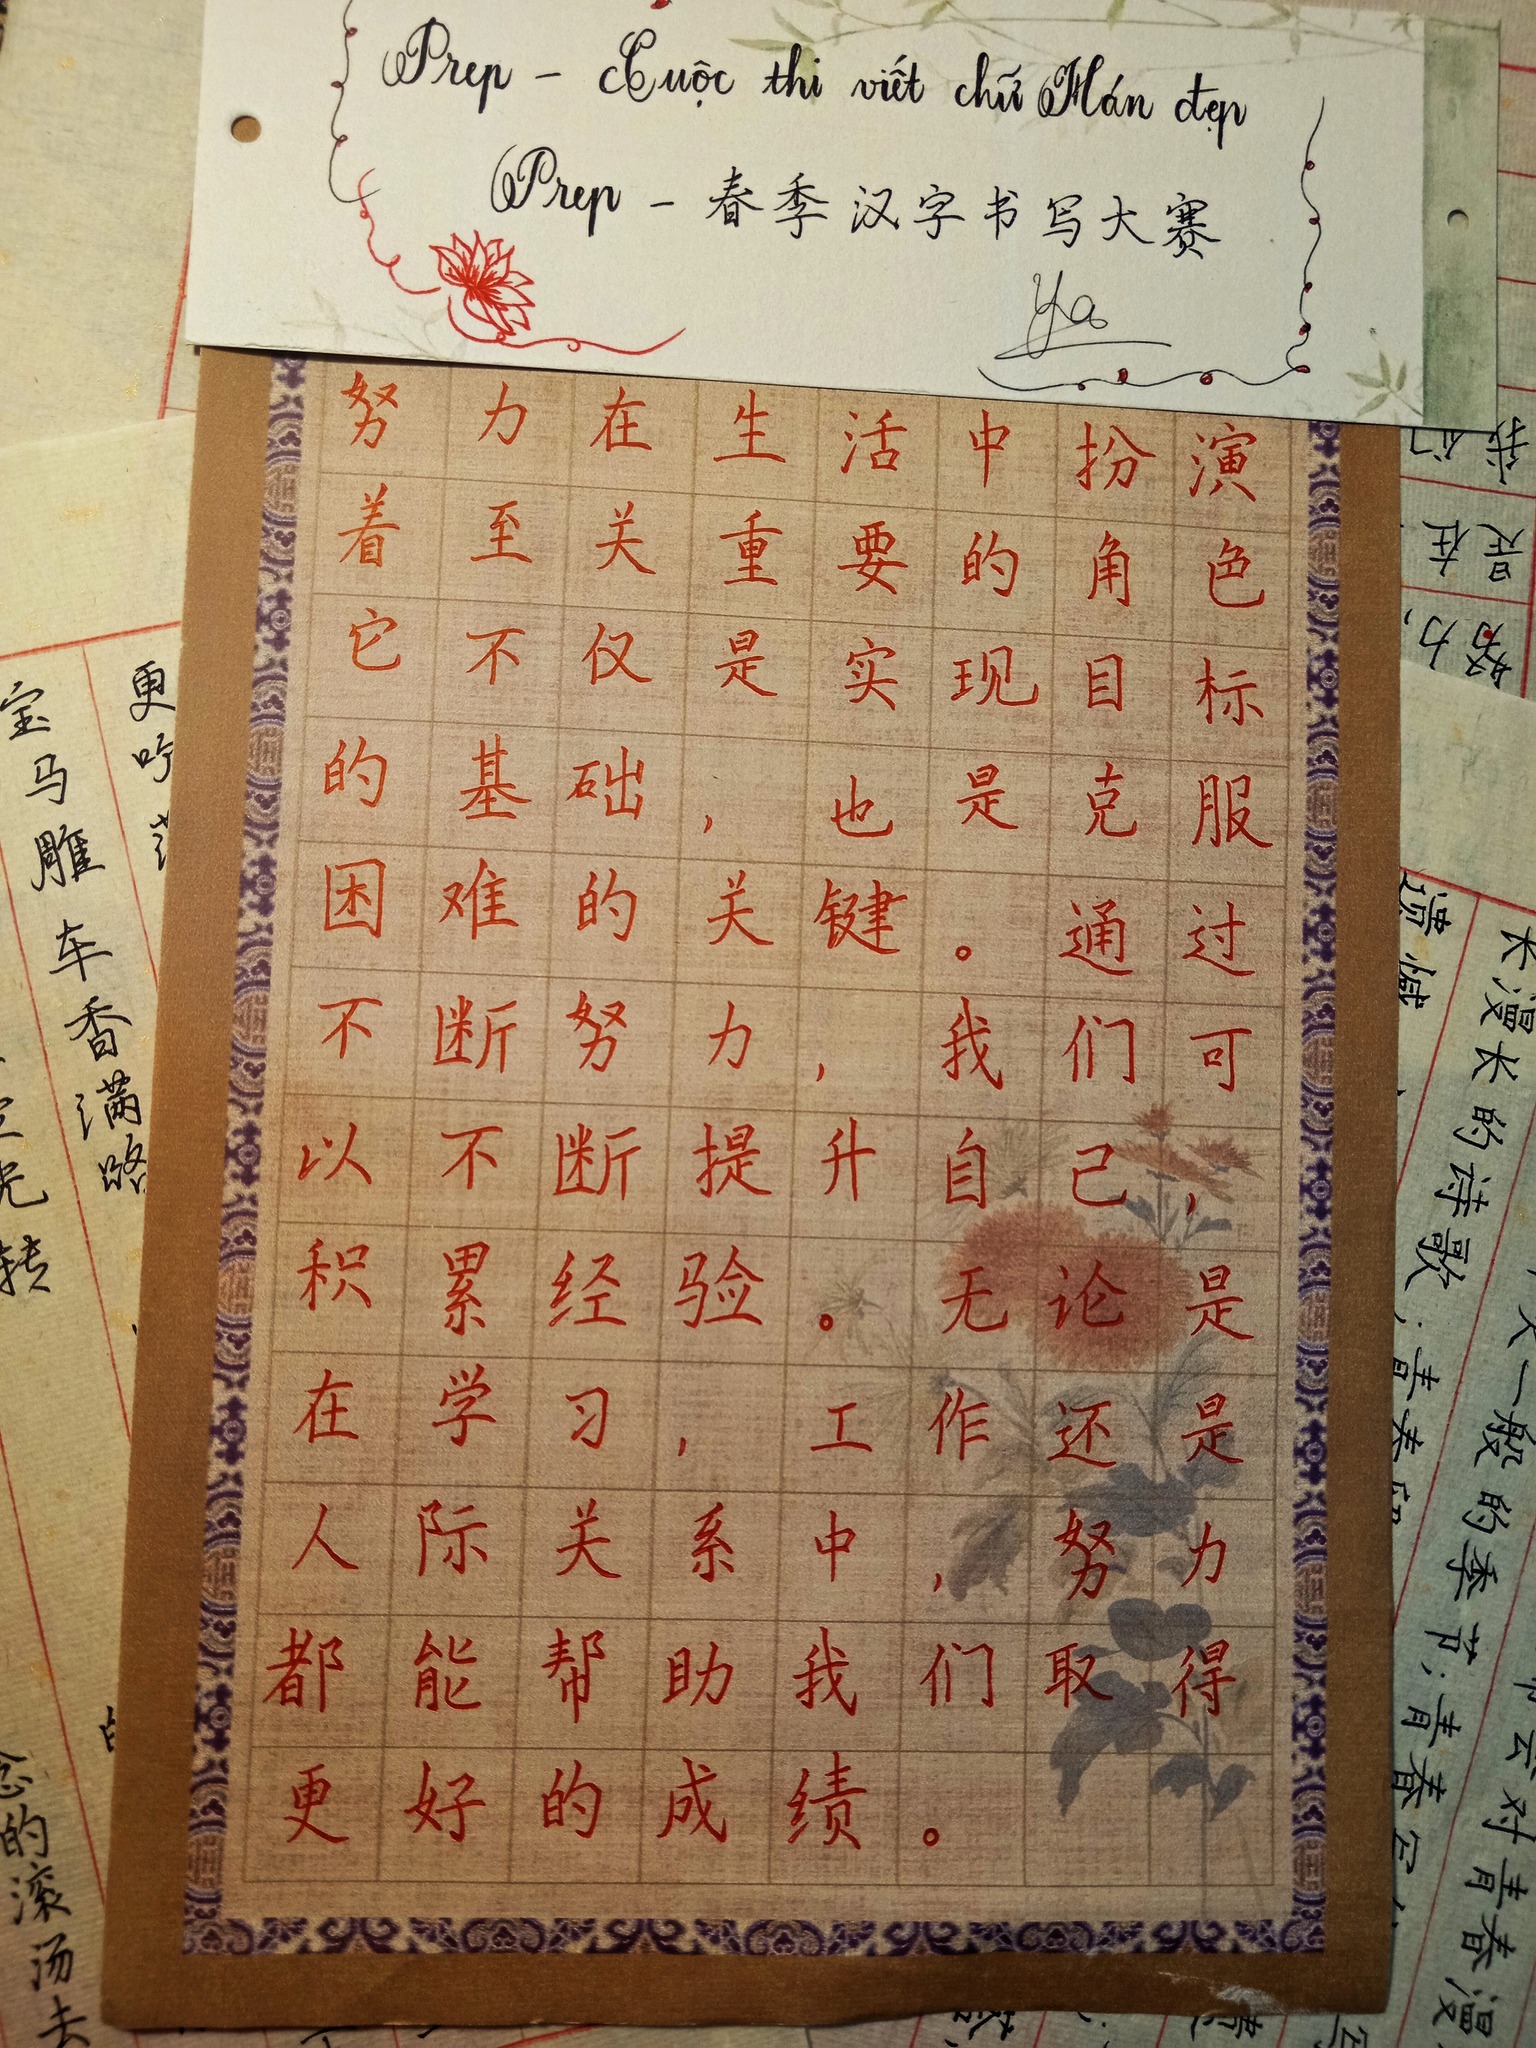 Prep - Cuộc thi viết chữ Hán đẹp
Prep - 春季汉字书写大赛
Ya
努力在生活中扮演
着至关重要的角色
它不仅是实现目标
的基础,也是克服
困难的关键。通过
不断努力,我们可
以不断提升自己,
积累经验。无论是
在学习,工作还是
人际关系中,努力
都能帮助我们取得
更好的成绩。
更吟
宝马雕车香满路
转
念的滚汤去
遗憾
长漫长的诗歌
一般的季节;青春
对青春漫